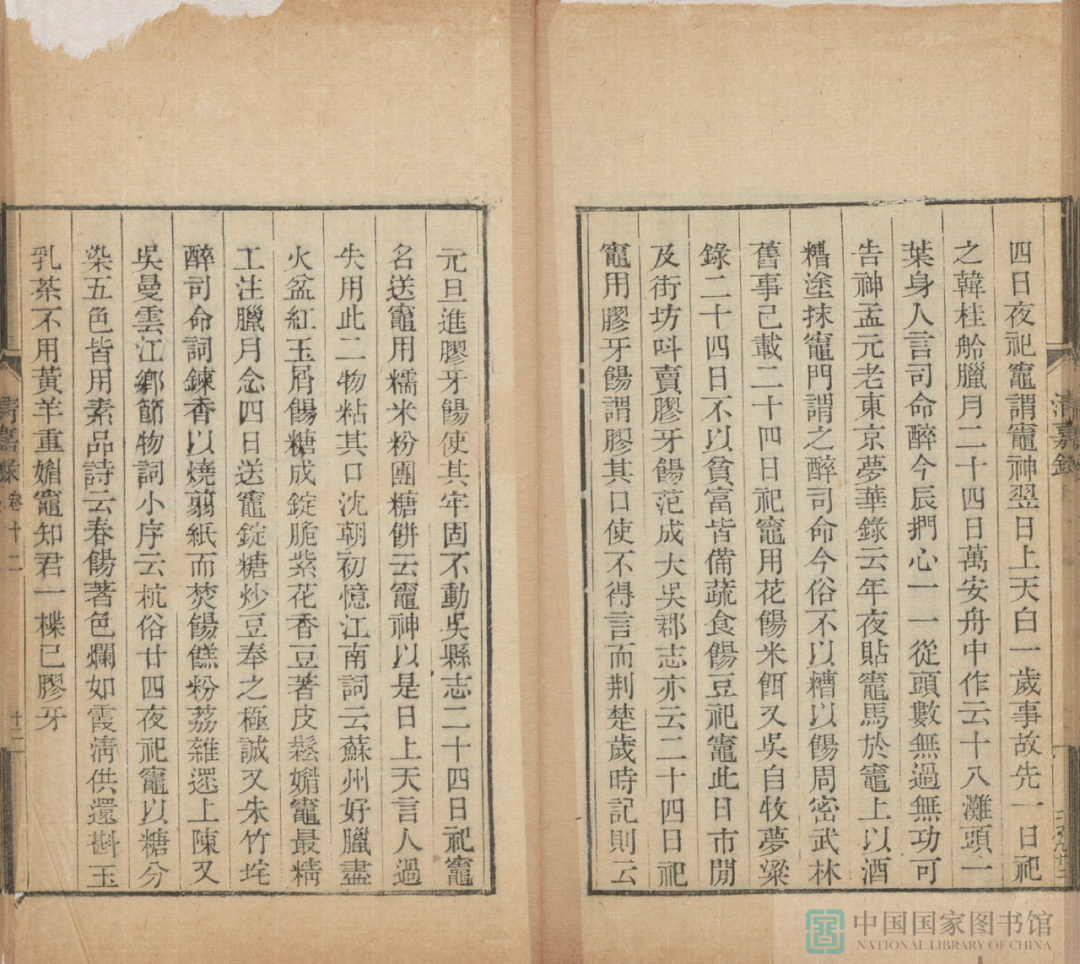 四日夜祀竈謂竈神翌日上天白一歲事故先一日祀
之韓桂舲臘月二十四日萬安舟中作云十八灘頭一
葉身人言司命醉今辰捫心一一從頭數無過無功可
告神孟元老東京夢華錄云年夜貼竈馬於竈上以酒
糟塗抹竈門謂之醉司命今俗不以糟以餳周密武林
舊事已載二十四日祀竈用花餳米餌又吳自牧夢粱
錄二十四日不以貧富皆備蔬食餳豆祀竈此日市閒
及街坊叫賣膠牙餳范成大吳郡志亦云二十四日祀
竈用膠牙餳謂膠其口使不得言而荆楚歲時記則云
元旦進膠牙餳使其牢固不動吳縣志二十四日祀竈
名送竈用糯米粉團糖餅云竈神以是日上天言人過
失用此二物粘其口沈朝初憶江南詞云蘇州好臘盡
火盆紅玉屑餳糖成錠脆紫花香豆著皮鬆媚竈最精
工注臘月念四日送竈錠糖炒豆奉之極誠又朱竹垞
醉司命詞鍊香以燒翦紙而焚餳餻粉荔雜遝上陳又
吳曼雲江鄉節物詞小序云杭俗廿四夜祀竈以糖分
染五色皆用素品詩云春餳著色爛如霞淸供還斟玉
乳茶不用黃羊重媚竈知君一楪已膠牙
清嘉錄
卷十二
中国国家图书馆
NATIONAL LIBRARY OF CHINA